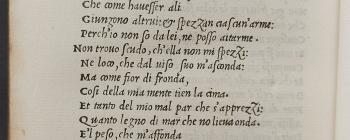 Che come hauesser ali
Giungono altrui: & spezzan ciascun' arme:
Perch'io non so da lei, ne posso aitarme.
Non trouo scudo, ch'ella non mi spezzi:
Ne loco, che dal uiso suo m'asconda:
Ma come fior di fronda,
Cosi della mia mente tien la cima.
Et tanto del mio mal par che s'apprezzi:
Quanto legno di mar che no lieua onda.
E'l peso, che m'affonda